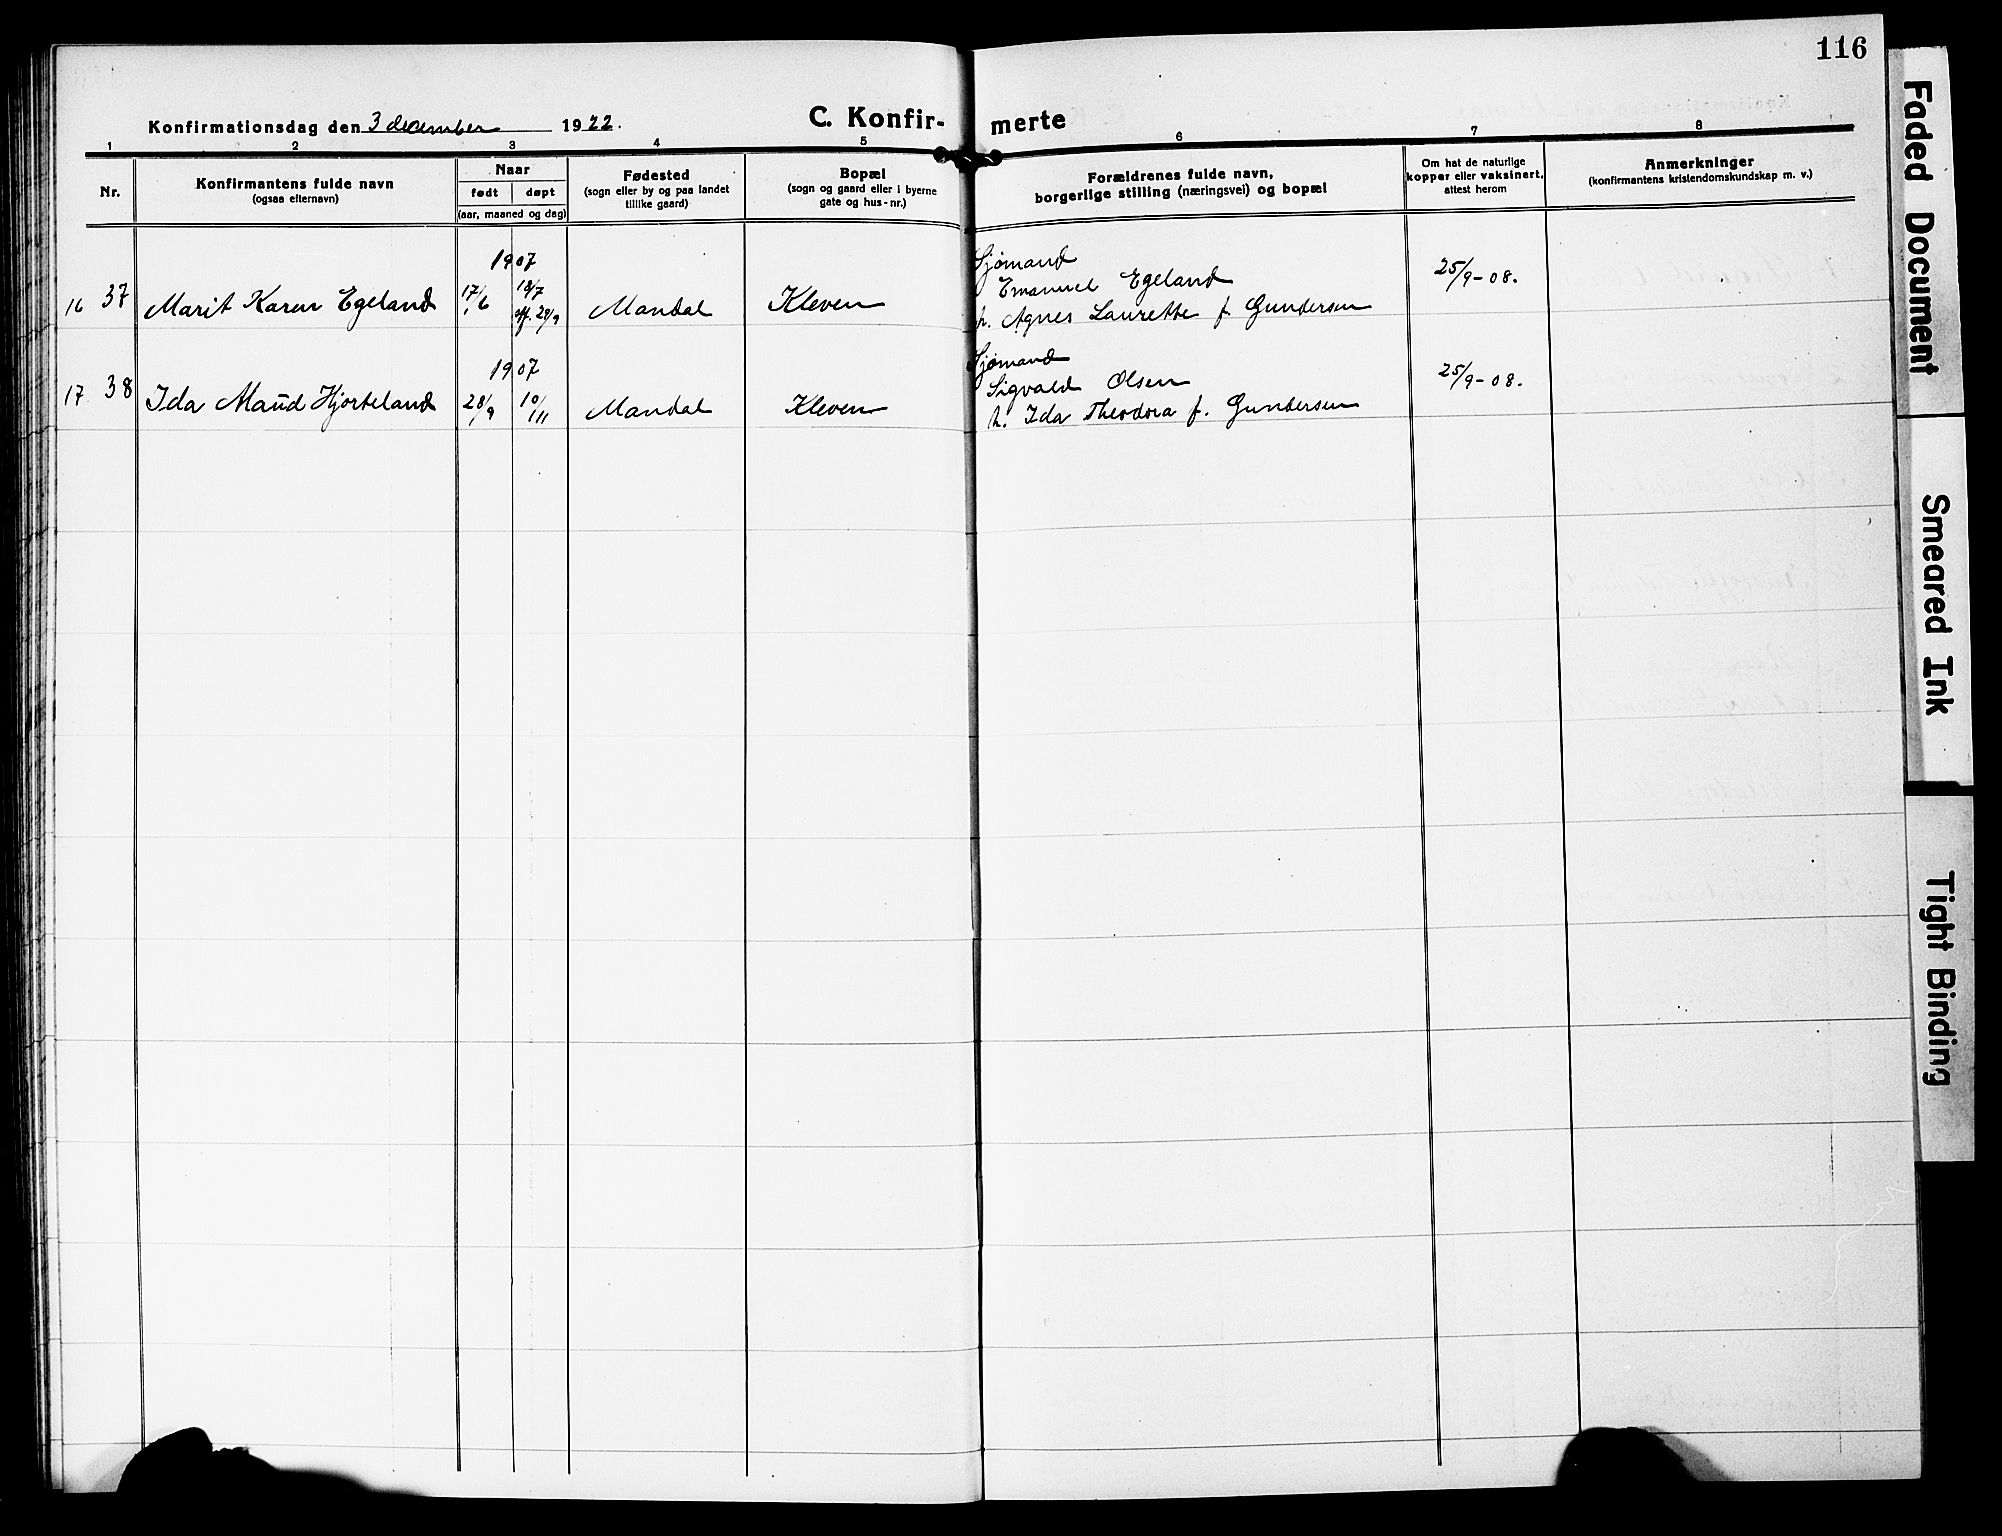 116
Konfirmationsdag den 3 december 1922.
C. Konfir- merte
1 2 3 4 5 6 7 8
Nr.
Konfirmantens fulde navn
(ogsaa efternavn)
Naar
født døpt
(aar, maaned og dag)
Fødested
(sogn eller by og paa landet
tillike gaard)
Bopæl
(sogn og gaard eller i byerne
gate og hus-nr.)
Forældrenes fulde navn,
borgerlige stilling (næringsvei) og bopæl
Om hat de naturlige
kopper eller vaksinert,
attest herom
Anmerkninger
(konfirmantens kristendomskundskap m. v.)
1907
16 37 Marit Karen Egeland 17/6 18/7 Mandal Kleven
29/9
Sjømand
Emanuel Egeland
h. Agnes Laurette f. Gundersen
25/9-08.
1907
17 38 Ida Maud Hjorteland 28/9 10/11 Mandal Kleven
Sjømand
Sigvald Olsen
h. Ida Theodora f. Gundersen
25/9-08.
Faded Document
Smeared Ink
Tight Binding